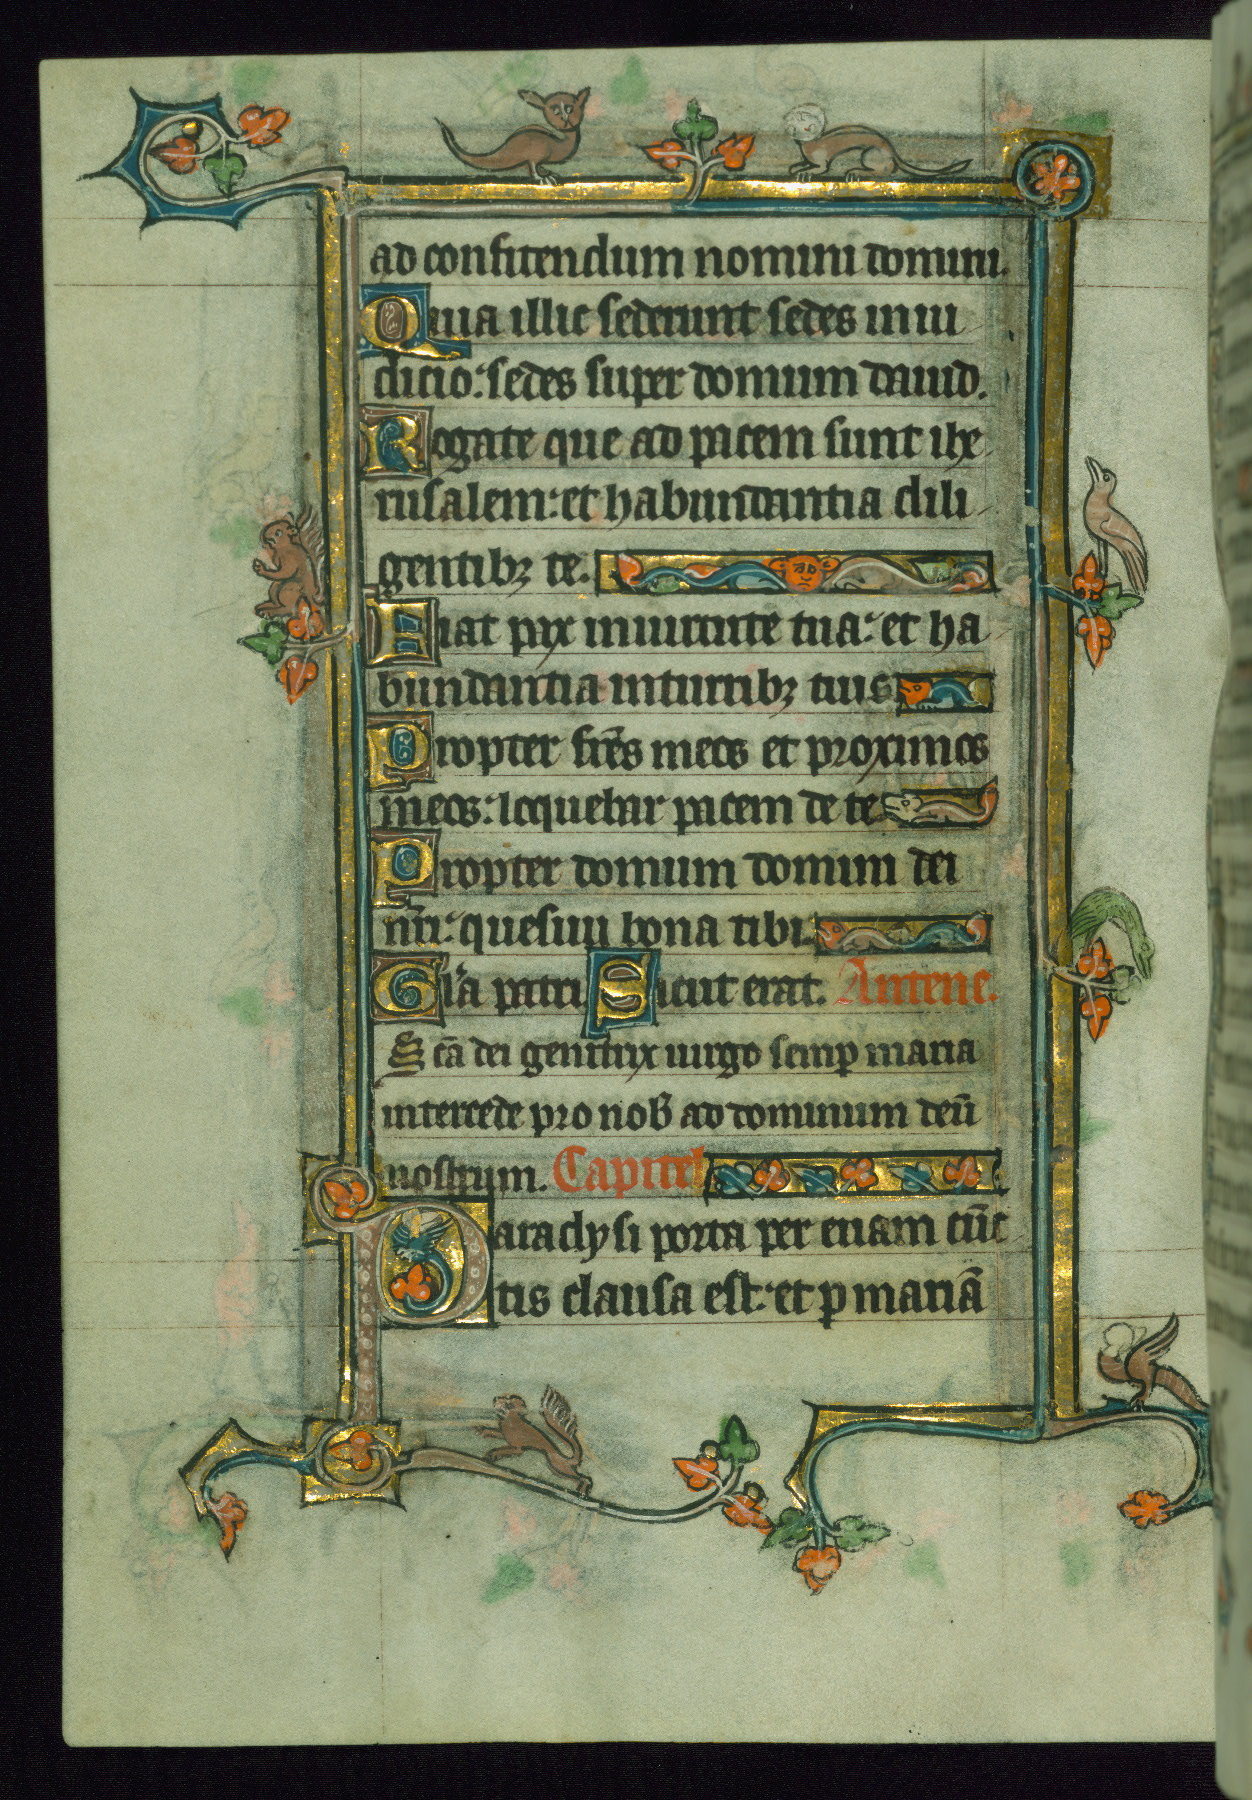 ad confitendum nomini domini.
Quia illic sederunt sedes in iu
dicio: sedes super domum dauid.
Rogate que ad pacem sunt ihe
rusalem: et habundantia dili
gentibꝫ te.
Fiat pax in uirtute tua: et ha
bundantia in turribꝫ tuis
Propter fr̄es meos et proximos
meos: loquebar pacem de te
Propter domum domini dei
nr̄i: quesiui bona tibi.
Gl'a patri Sicut erat. Antene.
Sc̄a dei genitrix uirgo semꝑ maria
intercede pro nob̄ ad dominum deū
nostrum. Capitel'
Paradysi porta per euam cūc
tis clausa est: et ꝑ mariā